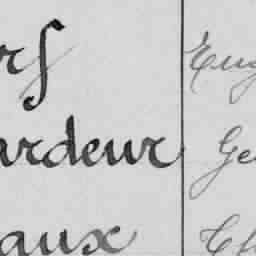 rs Eug
ardeur Ge
aux